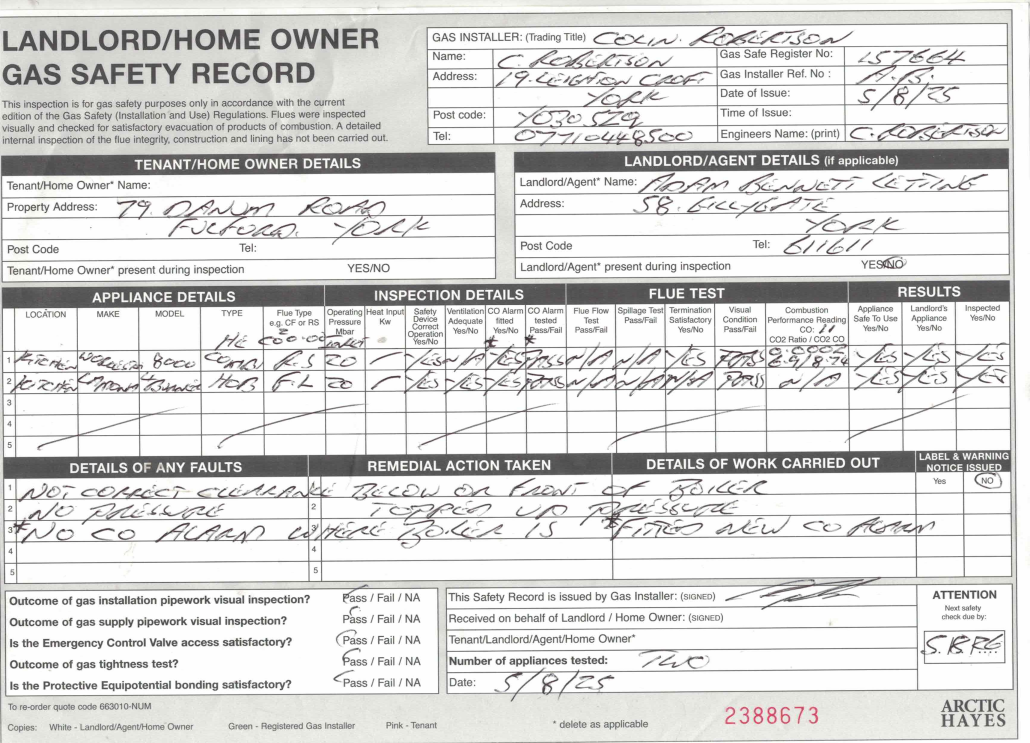 LANDLORD/HOME OWNER
GAS SAFETY RECORD
This inspection is for gas safety purposes only in accordance with the current
edition of the Gas Safety (Installation and Use) Regulations. Flues were inspected
visually and checked for satisfactory evacuation of products of combustion. A detailed
internal inspection of the flue integrity, construction and lining has not been carried out.
GAS INSTALLER: (Trading Title) COLIN. ROBERTSON
Name: C. ROBERTSON Gas Safe Register No: 157664
Address: 19. LEIGHTON CROFT. Gas Installer Ref. No : A.B.
YORK Date of Issue: 5/8/25
Post code: YO30 5ZQ Time of Issue:
Tel: 07710448500 Engineers Name: (print) C. ROBERTSON
TENANT/HOME OWNER DETAILS
Tenant/Home Owner* Name:
Property Address: 79. DANUM ROAD
FULFORD. YORK
Post Code Tel:
Tenant/Home Owner* present during inspection YES/NO
LANDLORD/AGENT DETAILS (if applicable)
Landlord/Agent* Name: ADAM BENNETT LETTING
Address: 58. GILLYGATE
YORK
Post Code Tel: 611611
Landlord/Agent* present during inspection YES/NO
APPLIANCE DETAILS INSPECTION DETAILS FLUE TEST RESULTS
LOCATION MAKE MODEL TYPE Flue Type e.g. CF or RS Operating Pressure Mbar Heat Input Kw Safety Device Correct Operation Yes/No Ventilation Adequate Yes/No CO Alarm fitted Yes/No CO Alarm tested Pass/Fail Flue Flow Test Pass/Fail Spillage Test Pass/Fail Termination Satisfactory Yes/No Visual Condition Pass/Fail Combustion Performance Reading CO: CO2 Ratio / CO2 CO Appliance Safe To Use Yes/No Landlord's Appliance Yes/No Inspected Yes/No
1 KITCHEN WORCESTER 8000 COMBI R.S 20 YES N/A YES PASS N/A N/A YES PASS 0.0002 YES YES YES
2 KITCHEN HOB F.L 20 YES YES YES PASS N/A N/A N/A PASS N/A YES YES YES
3
4
5
DETAILS OF ANY FAULTS REMEDIAL ACTION TAKEN DETAILS OF WORK CARRIED OUT LABEL & WARNING NOTICE ISSUED
Yes NO
1 NOT CORRECT CLEARANCE BELOW OR FRONT OF BOILER
2 NO PRESSURE 2 TOPPED UP PRESSURE
3 * NO CO ALARM WHERE BOILER IS * FITTED NEW CO ALARM
4 4
5 5
Outcome of gas installation pipework visual inspection? Pass / Fail / NA
Outcome of gas supply pipework visual inspection? Pass / Fail / NA
Is the Emergency Control Valve access satisfactory? Pass / Fail / NA
Outcome of gas tightness test? Pass / Fail / NA
Is the Protective Equipotential bonding satisfactory? Pass / Fail / NA
This Safety Record is issued by Gas Installer: (SIGNED)
Received on behalf of Landlord / Home Owner: (SIGNED)
Tenant/Landlord/Agent/Home Owner*
Number of appliances tested: TWO
Date: 5/8/25
ATTENTION
Next safety
check due by:
To re-order quote code 663010-NUM
Copies: White - Landlord/Agent/Home Owner Green - Registered Gas Installer Pink - Tenant * delete as applicable 2388673
ARCTIC
HAYES